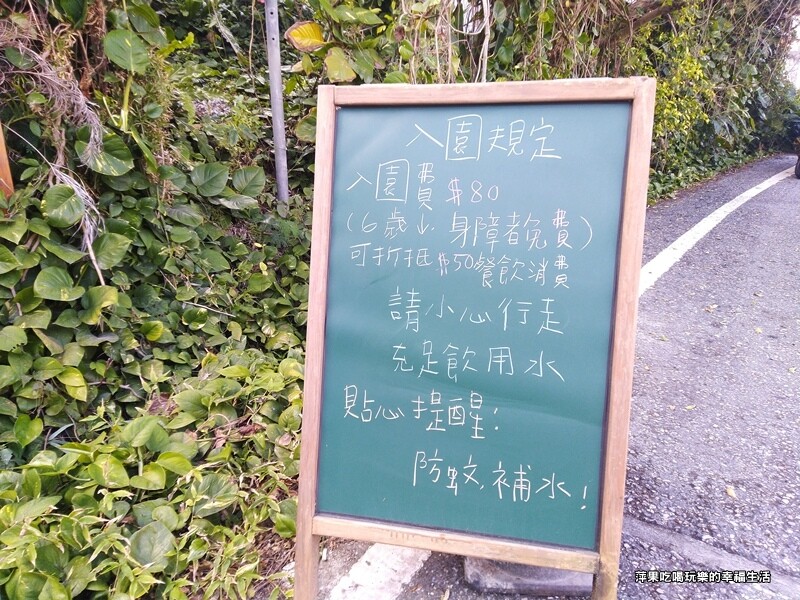 入園規定
入園費$80
(6歲↓.身障者免費)
可折抵$50餐飲消費
請小心行走
充足飲用水
貼心提醒:
防蚊,補水!
萍果吃喝玩樂的幸福生活